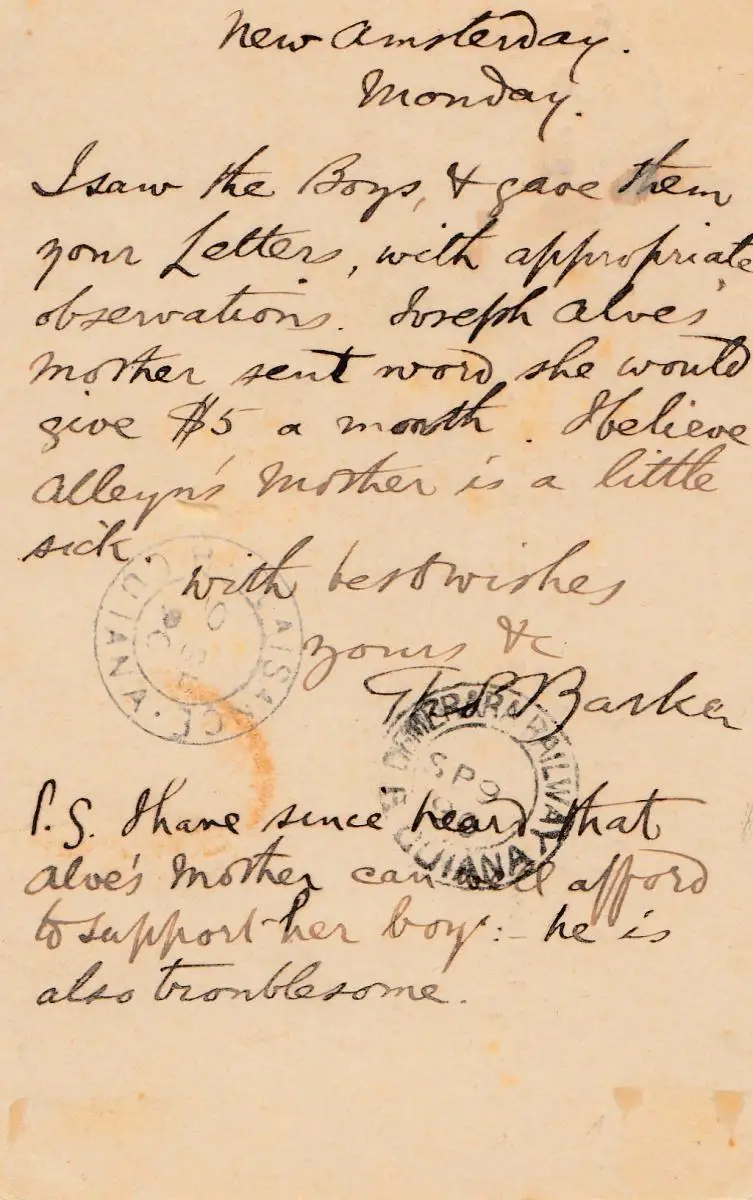 New Amsterday.
Monday.
I saw the Boys, & gave them
your Letters, with appropriate
observations. Joseph Alves'
Mother sent word she would
give $5 a month. I believe
Alleyn's Mother is a little
sick.
with best wishes
yours &c
Barker
DEMERARA RAILWAY
SP 9
GUIANA
GUIANA
P.S. I have since heard that
Alve's Mother can well afford
to support her boy:– he is
also troublesome.